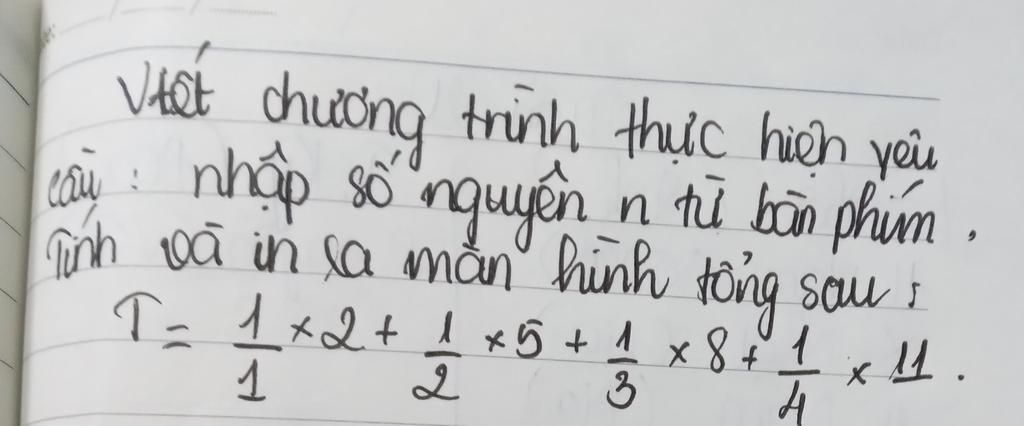 Viết chương trình thực hiện yêu
cầu : nhập số nguyên n từ bàn phím.
Tính và in ra màn hình tổng sau :
T = 1/1 × 2 + 1/2 × 5 + 1/3 × 8 + 1/4 × 11 .